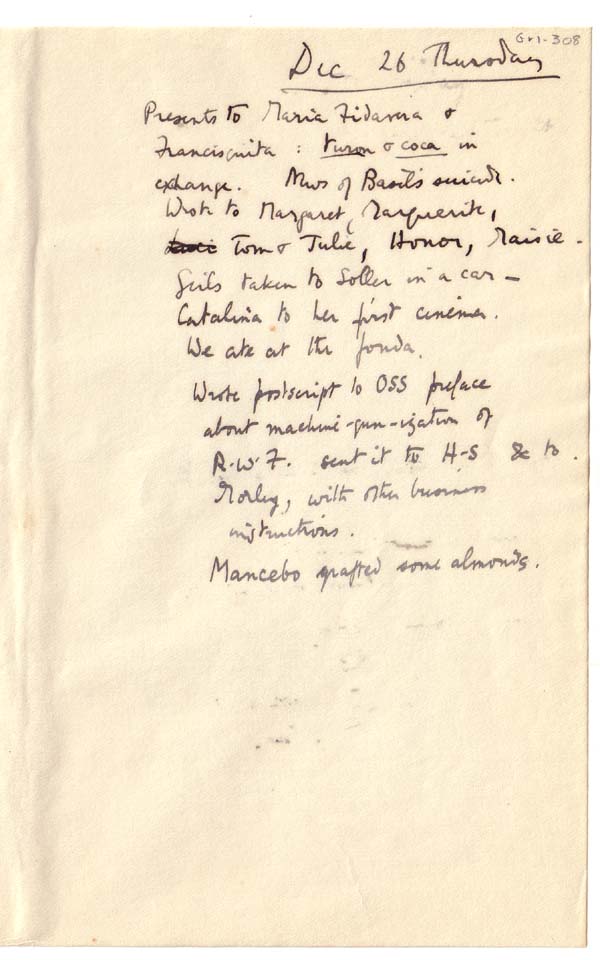 Gr1-308
Dec 26 Thursday
Presents to Maria Fidavera &
Francisquita : turon & coca in
exchange. News of Basil's suicide.
Wrote to Margaret, Marguerite,
Tom & Julie, Honor, Maisie.
Girls taken to Soller in a car –
Catalina to her first cinema.
We ate at the fonda.
Wrote postscript to OSS preface
about machine-gun-ization of
R.W.F. sent it to H-S & to
Morley, with other business
instructions.
Mancebo grafted some almonds.